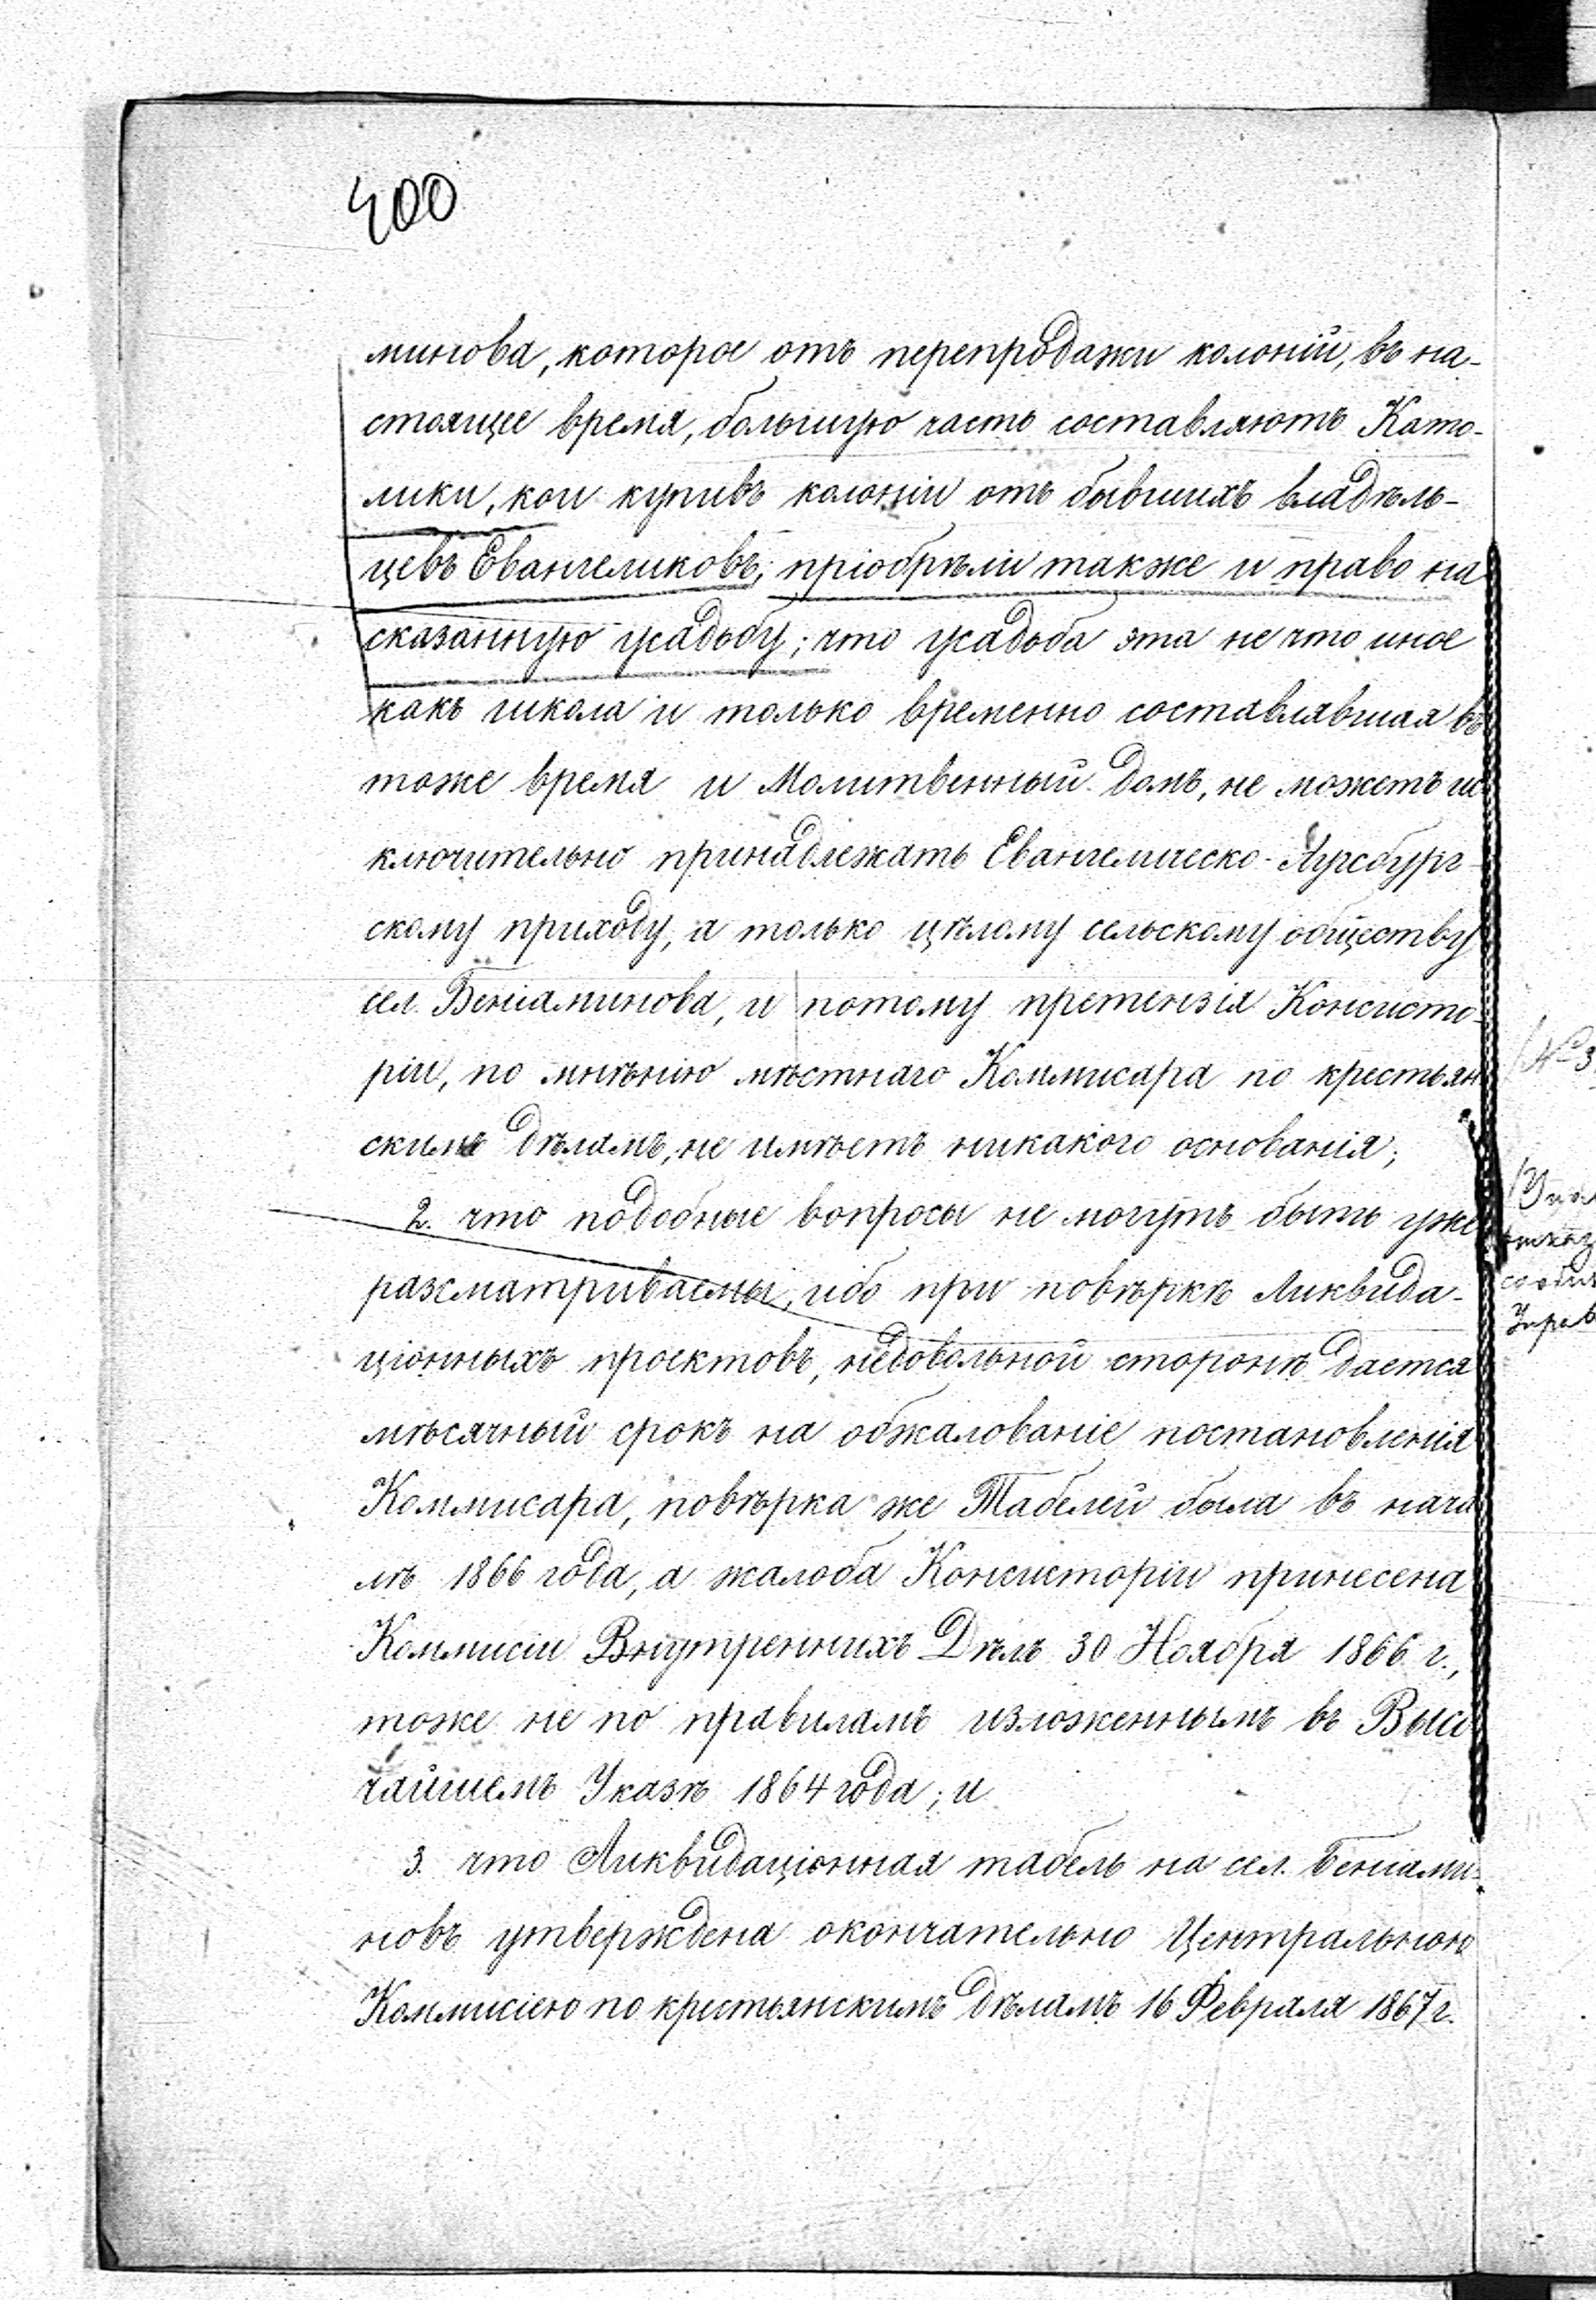 400
минова, которое отъ перепродажи колоній, въ на-
стоящее время, большую часть составляютъ Като-
лики, кои купивъ колоніи отъ бывшихъ владѣль-
цевъ Евангеликовъ, пріобрѣли также и право на
сказанную усадьбу; что усадьба эта не что иное
какъ школа и только временно составлявшая въ
тоже время и Молитвенный домъ, не можетъ ис
ключительно принадлежать Евангелическо-Аугсбург-
скому приходу, а только цѣлому сельскому обществу
сел. Беніаминова, и потому претензія Консисто-
ріи, по мнѣнію мѣстнаго Коммисара по крестьян
скимъ дѣламъ, не имѣетъ никакого основанія;
2. что подобные вопросы не могутъ быть уже
разсматриваемы, ибо при повѣркѣ Ликвида-
ціонныхъ проектовъ, недовольной сторонѣ дается
мѣсячный срокъ на обжалованіе постановленія
Коммисара, повѣрка же Табелей была въ нача
лѣ 1866 года, а жалоба Консисторіи принесена
Коммисіи Внутреннихъ Дѣлъ 30 Ноября 1866 г.,
тоже не по правиламъ изложеннымъ въ Высо
чайшемъ Указѣ 1864 года; и
3. что Ликвидаціонная табель на сел. Беніами-
новъ утверждена окончательно Центральною
Коммисіею по крестьянскимъ дѣламъ 16 Февраля 1867 г.
№ 3